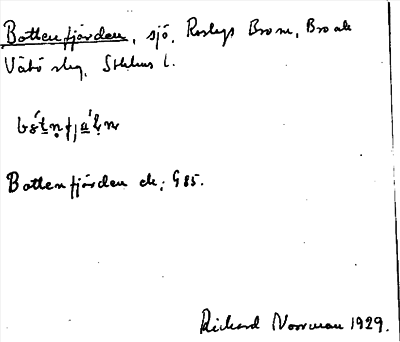 Bottenfjärden, sjö, Roslags Bro sn, Bro och
Vätö slg, Sthlms l.
Bottenfjärden ek; G 85.
Rickard Norrman 1929.